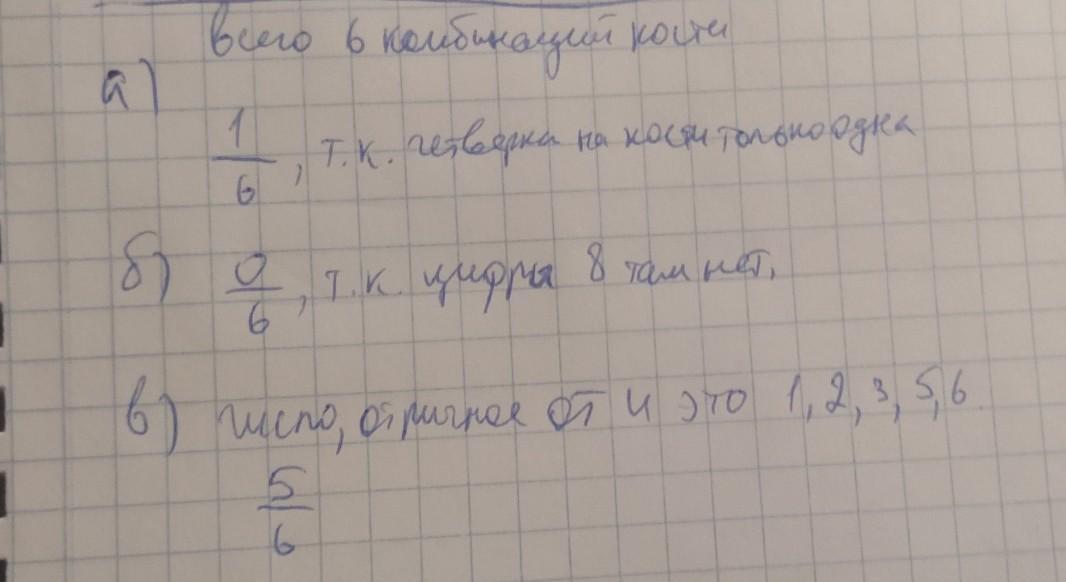 всего 6 комбинаций кости
а)
1/6, т.к. четверка на кости только одна
б) 0/6, т.к. цифры 8 там нет.
в) число, отличное от 4 это 1, 2, 3, 5, 6.
5/6